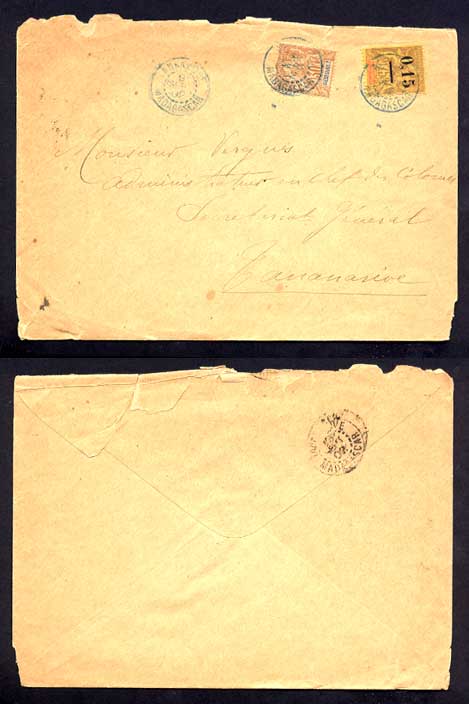 MADAGASCAR
MADAGASCAR
0,15
MADAGASCAR
Monsieur Vergnes
Administrateur en chef des Colonies
Secrétariat Général
Tananarive
MADAGASCAR